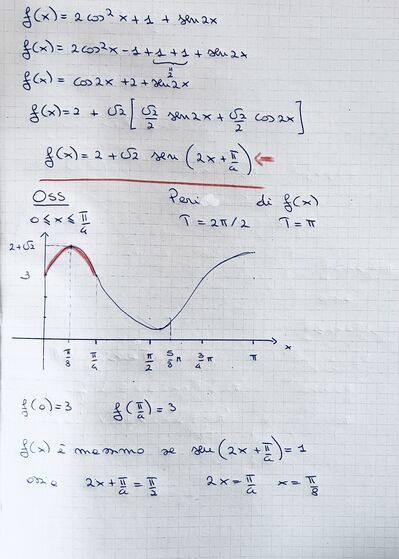 f(x) = 2cos²x + 1 + sen2x
f(x) = 2cos²x - 1 + 1 + 1 + sen2x
2
f(x) = cos2x + 2 + sen2x
f(x) = 2 + √2 [ √2/2 sen2x + √2/2 cos2x ]
f(x) = 2 + √2 sen (2x + π/4) ←
Oss Peri di f(x)
0 ≤ x ≤ π/4 T = 2π/2 T = π
2+√2
3
π/8 π/4 π/2 5/8 π 3/4 π π x
f(0) = 3 f(π/4) = 3
f(x) è massimo se sen(2x + π/4) = 1
ossia 2x + π/4 = π/2 2x = π/4 x = π/8